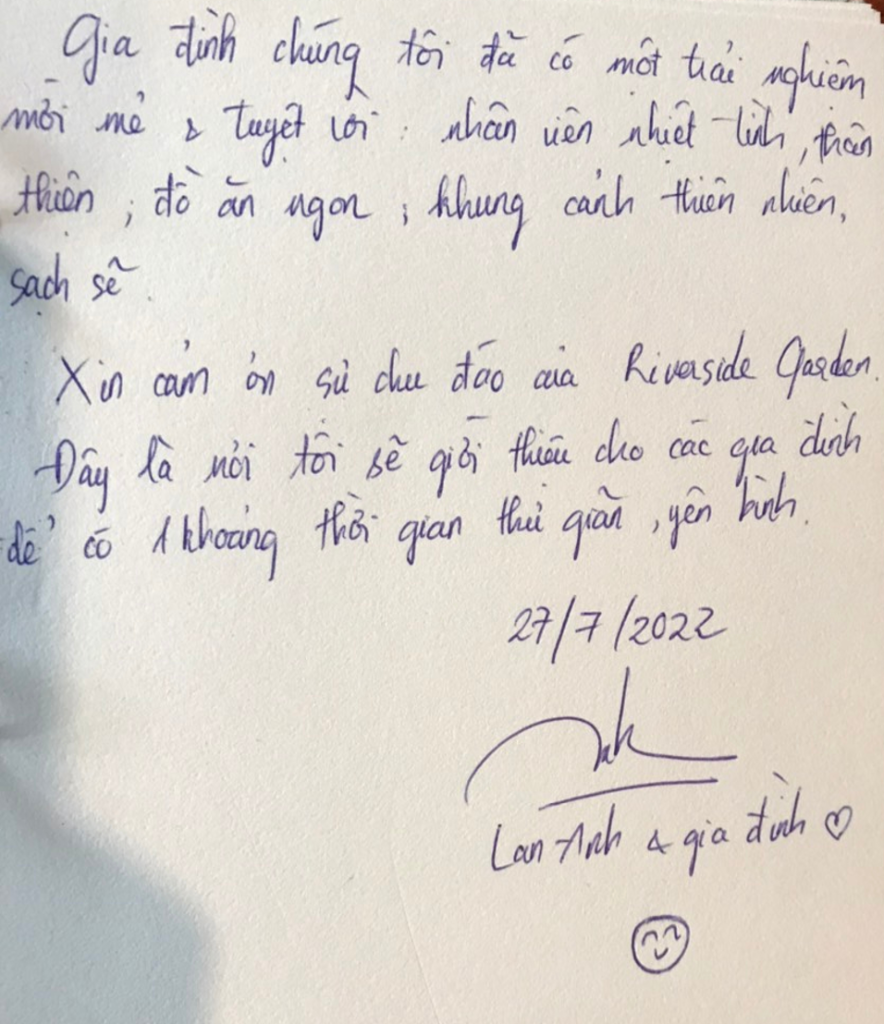 Gia đình chúng tôi đã có một trải nghiệm
mới mẻ & tuyệt vời : nhân viên nhiệt tình, thân
thiện ; đồ ăn ngon ; khung cảnh thiên nhiên,
sạch sẽ.
Xin cảm ơn sự chu đáo của Riverside Garden.
Đây là nơi tôi sẽ giới thiệu cho các gia đình
để có 1 khoảng thời gian thư giãn, yên bình.
27/7/2022
Lan Anh & gia đình ♡